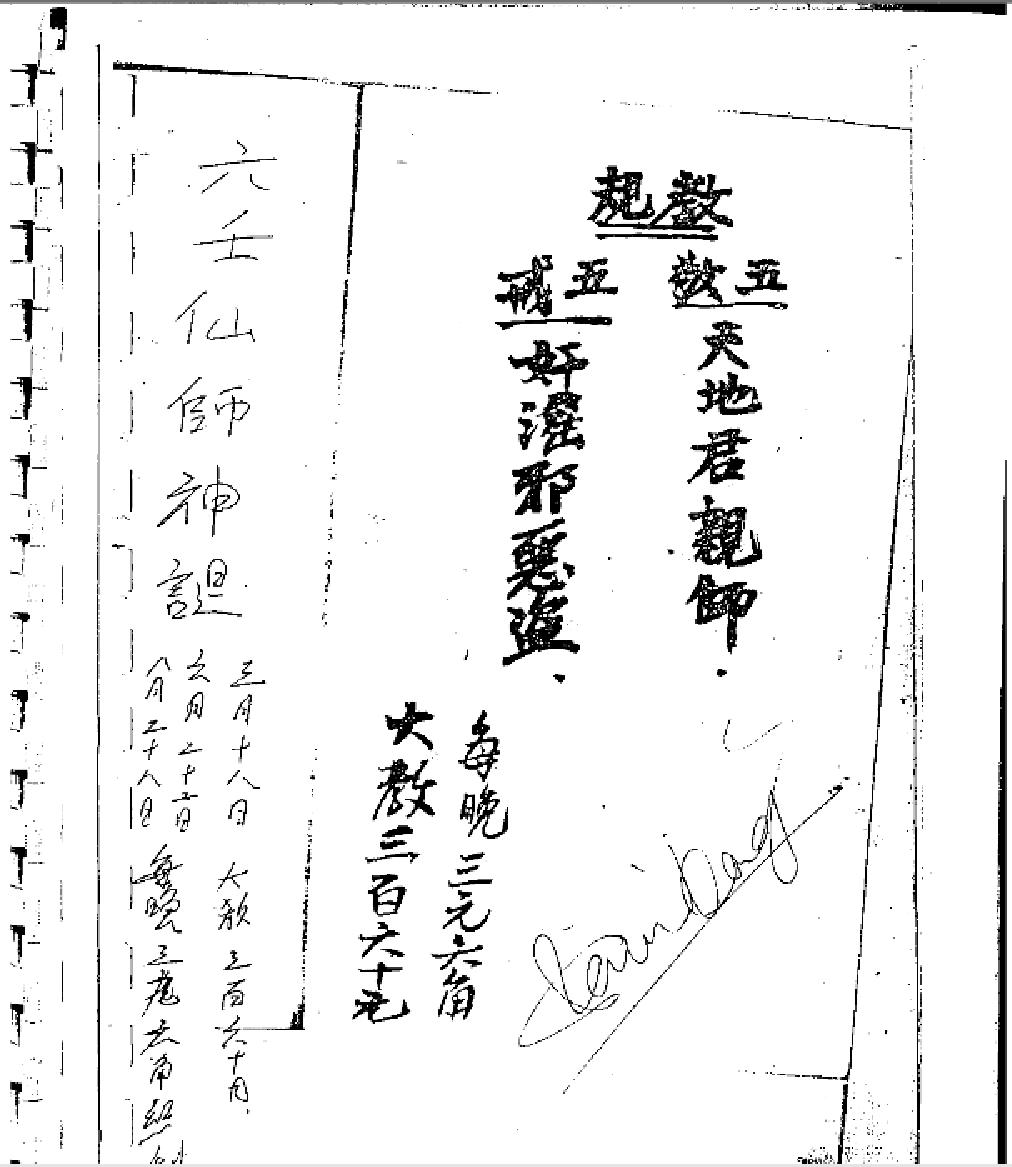 教規
五敬
天地君親師.
五戒
奸淫邪惡盜.
每晚三元六角
大教三百六十元
六壬仙師神誕
三月十八日
六月二十二日
八月二十八日
大教三百六十元
每晚三元六角